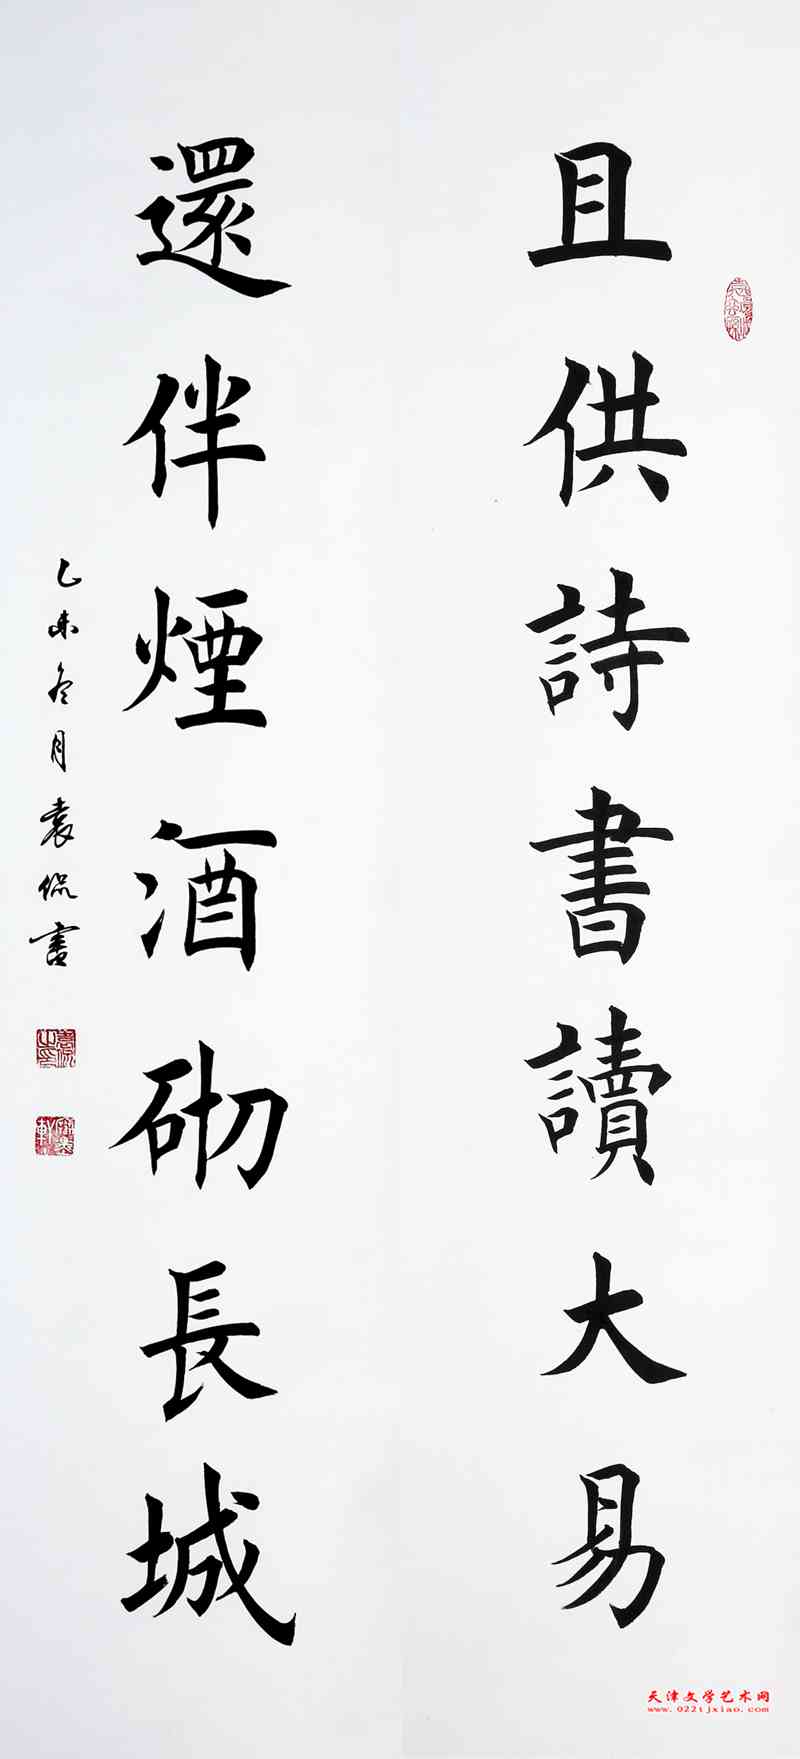 且供詩書讀大易
還伴煙酒砌長城
乙未冬月袁侃書
天津文学艺术网
www.022tjxiao.com